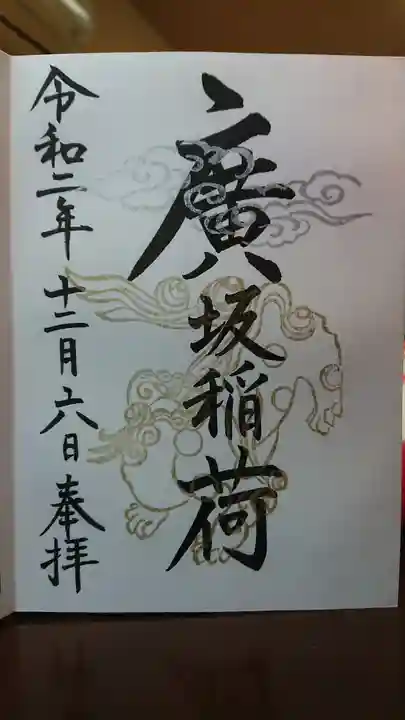 廣坂稲荷
令和二年十二月六日奉拝